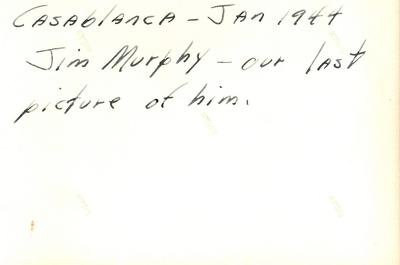 Casablanca - Jan 1944
Jim Murphy - our last
picture of him.